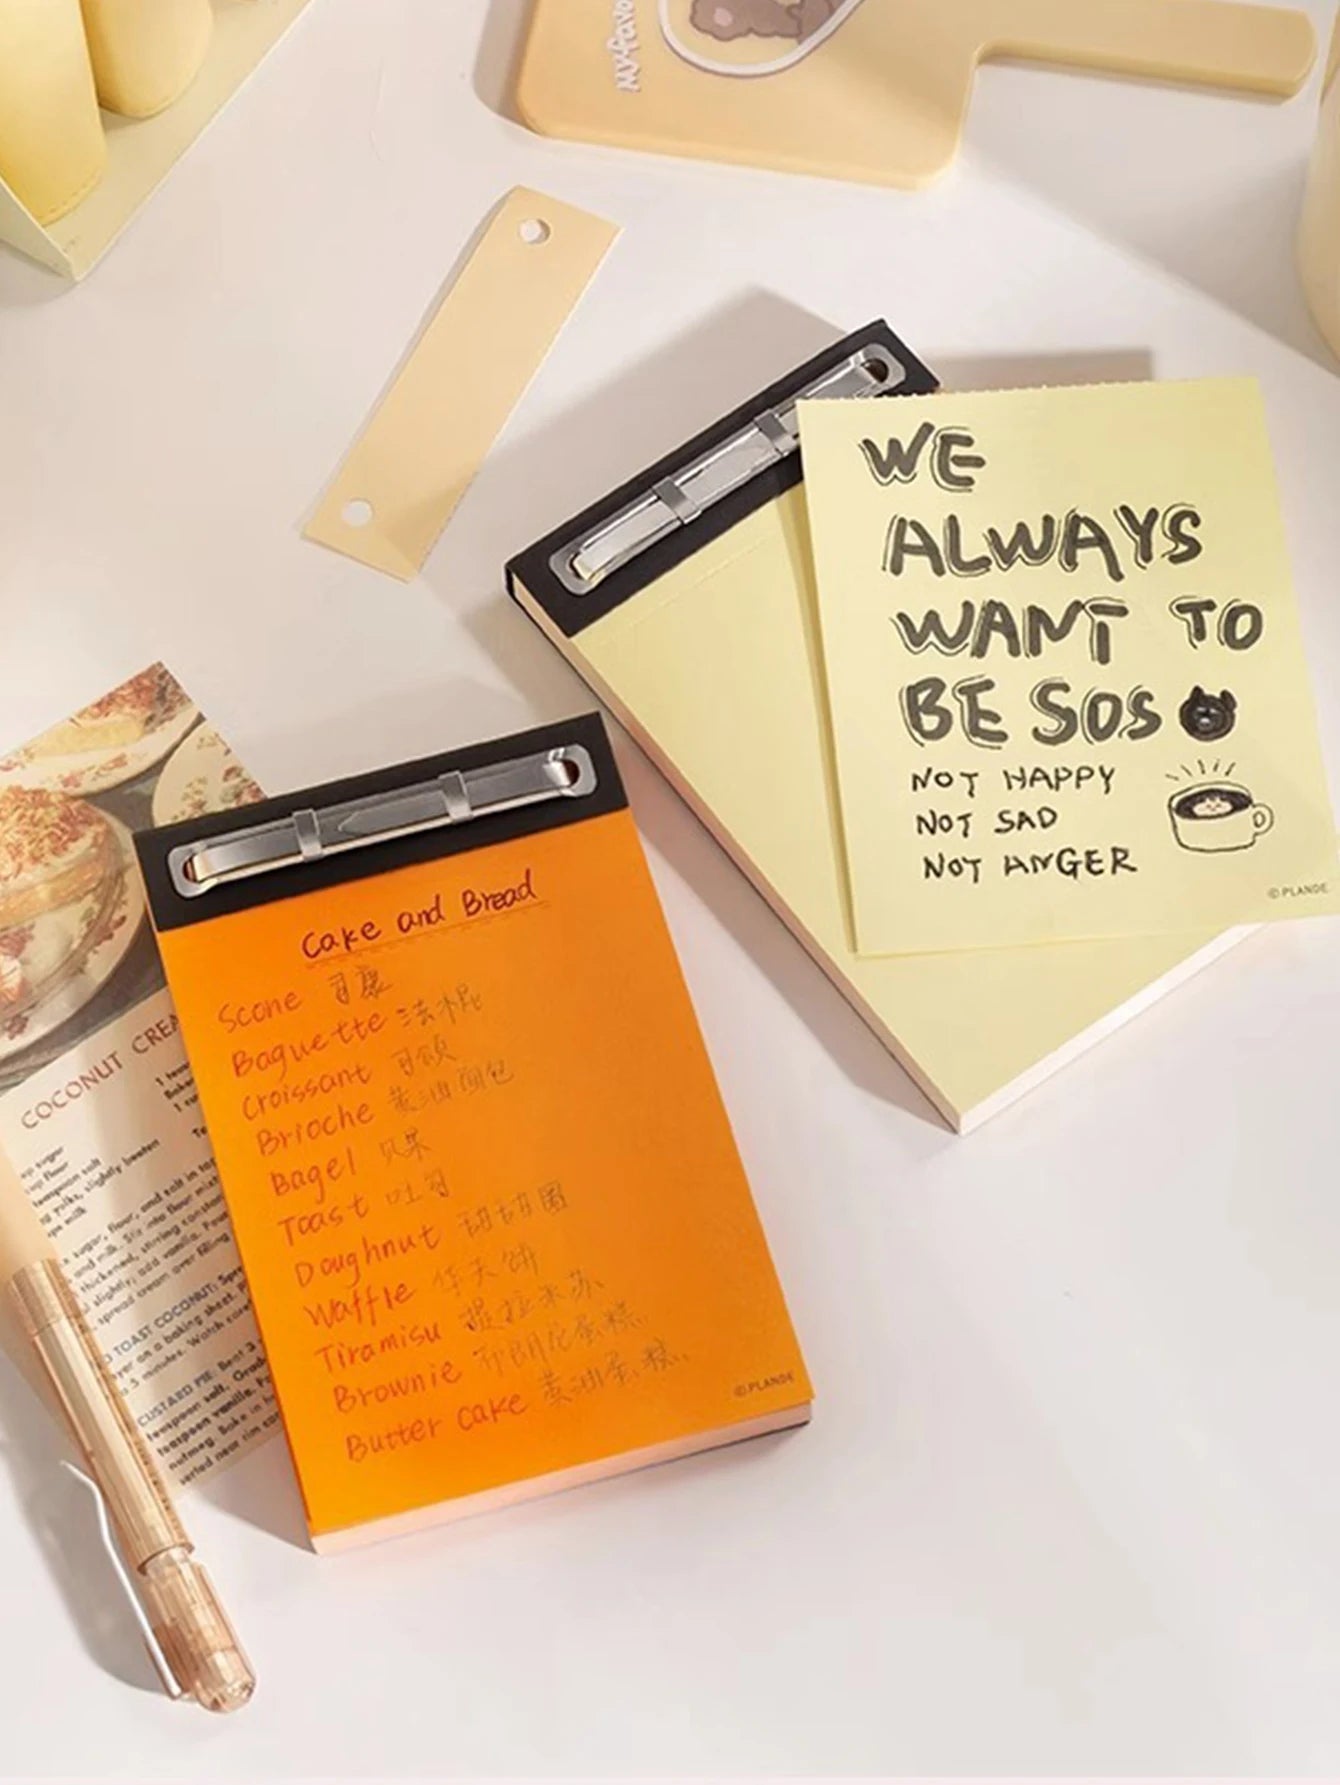 My favo
WE
ALWAYS
WANT TO
BE SOS
NOT HAPPY
NOT SAD
NOT ANGER
© PLANDE.
Cake and Bread
Scone 司康
Baguette 法棍
Croissant 可颂
Brioche 黄油面包
Bagel 贝果
Toast 吐司
Doughnut 甜甜圈
Waffle 华夫饼
Tiramisu 提拉米苏
Brownie 布朗尼蛋糕
Butter cake 黄油蛋糕
© PLANDE
COCONUT CREA
sugar
flour
teaspoon salt
yolks, slightly beaten
milk
sugar, flour, and salt in
and milk. Stir into flour
thickened, stirring constant
slightly; add vanilla. Pour
spread cream over filling
TOAST COCONUT: Spre
on a baking sheet.
5 minutes. Watch care
CUSTARD PIE: Beat 3
teaspoon salt. Grad
teaspoon vanilla.
nutmeg. Bake in
serted near rim